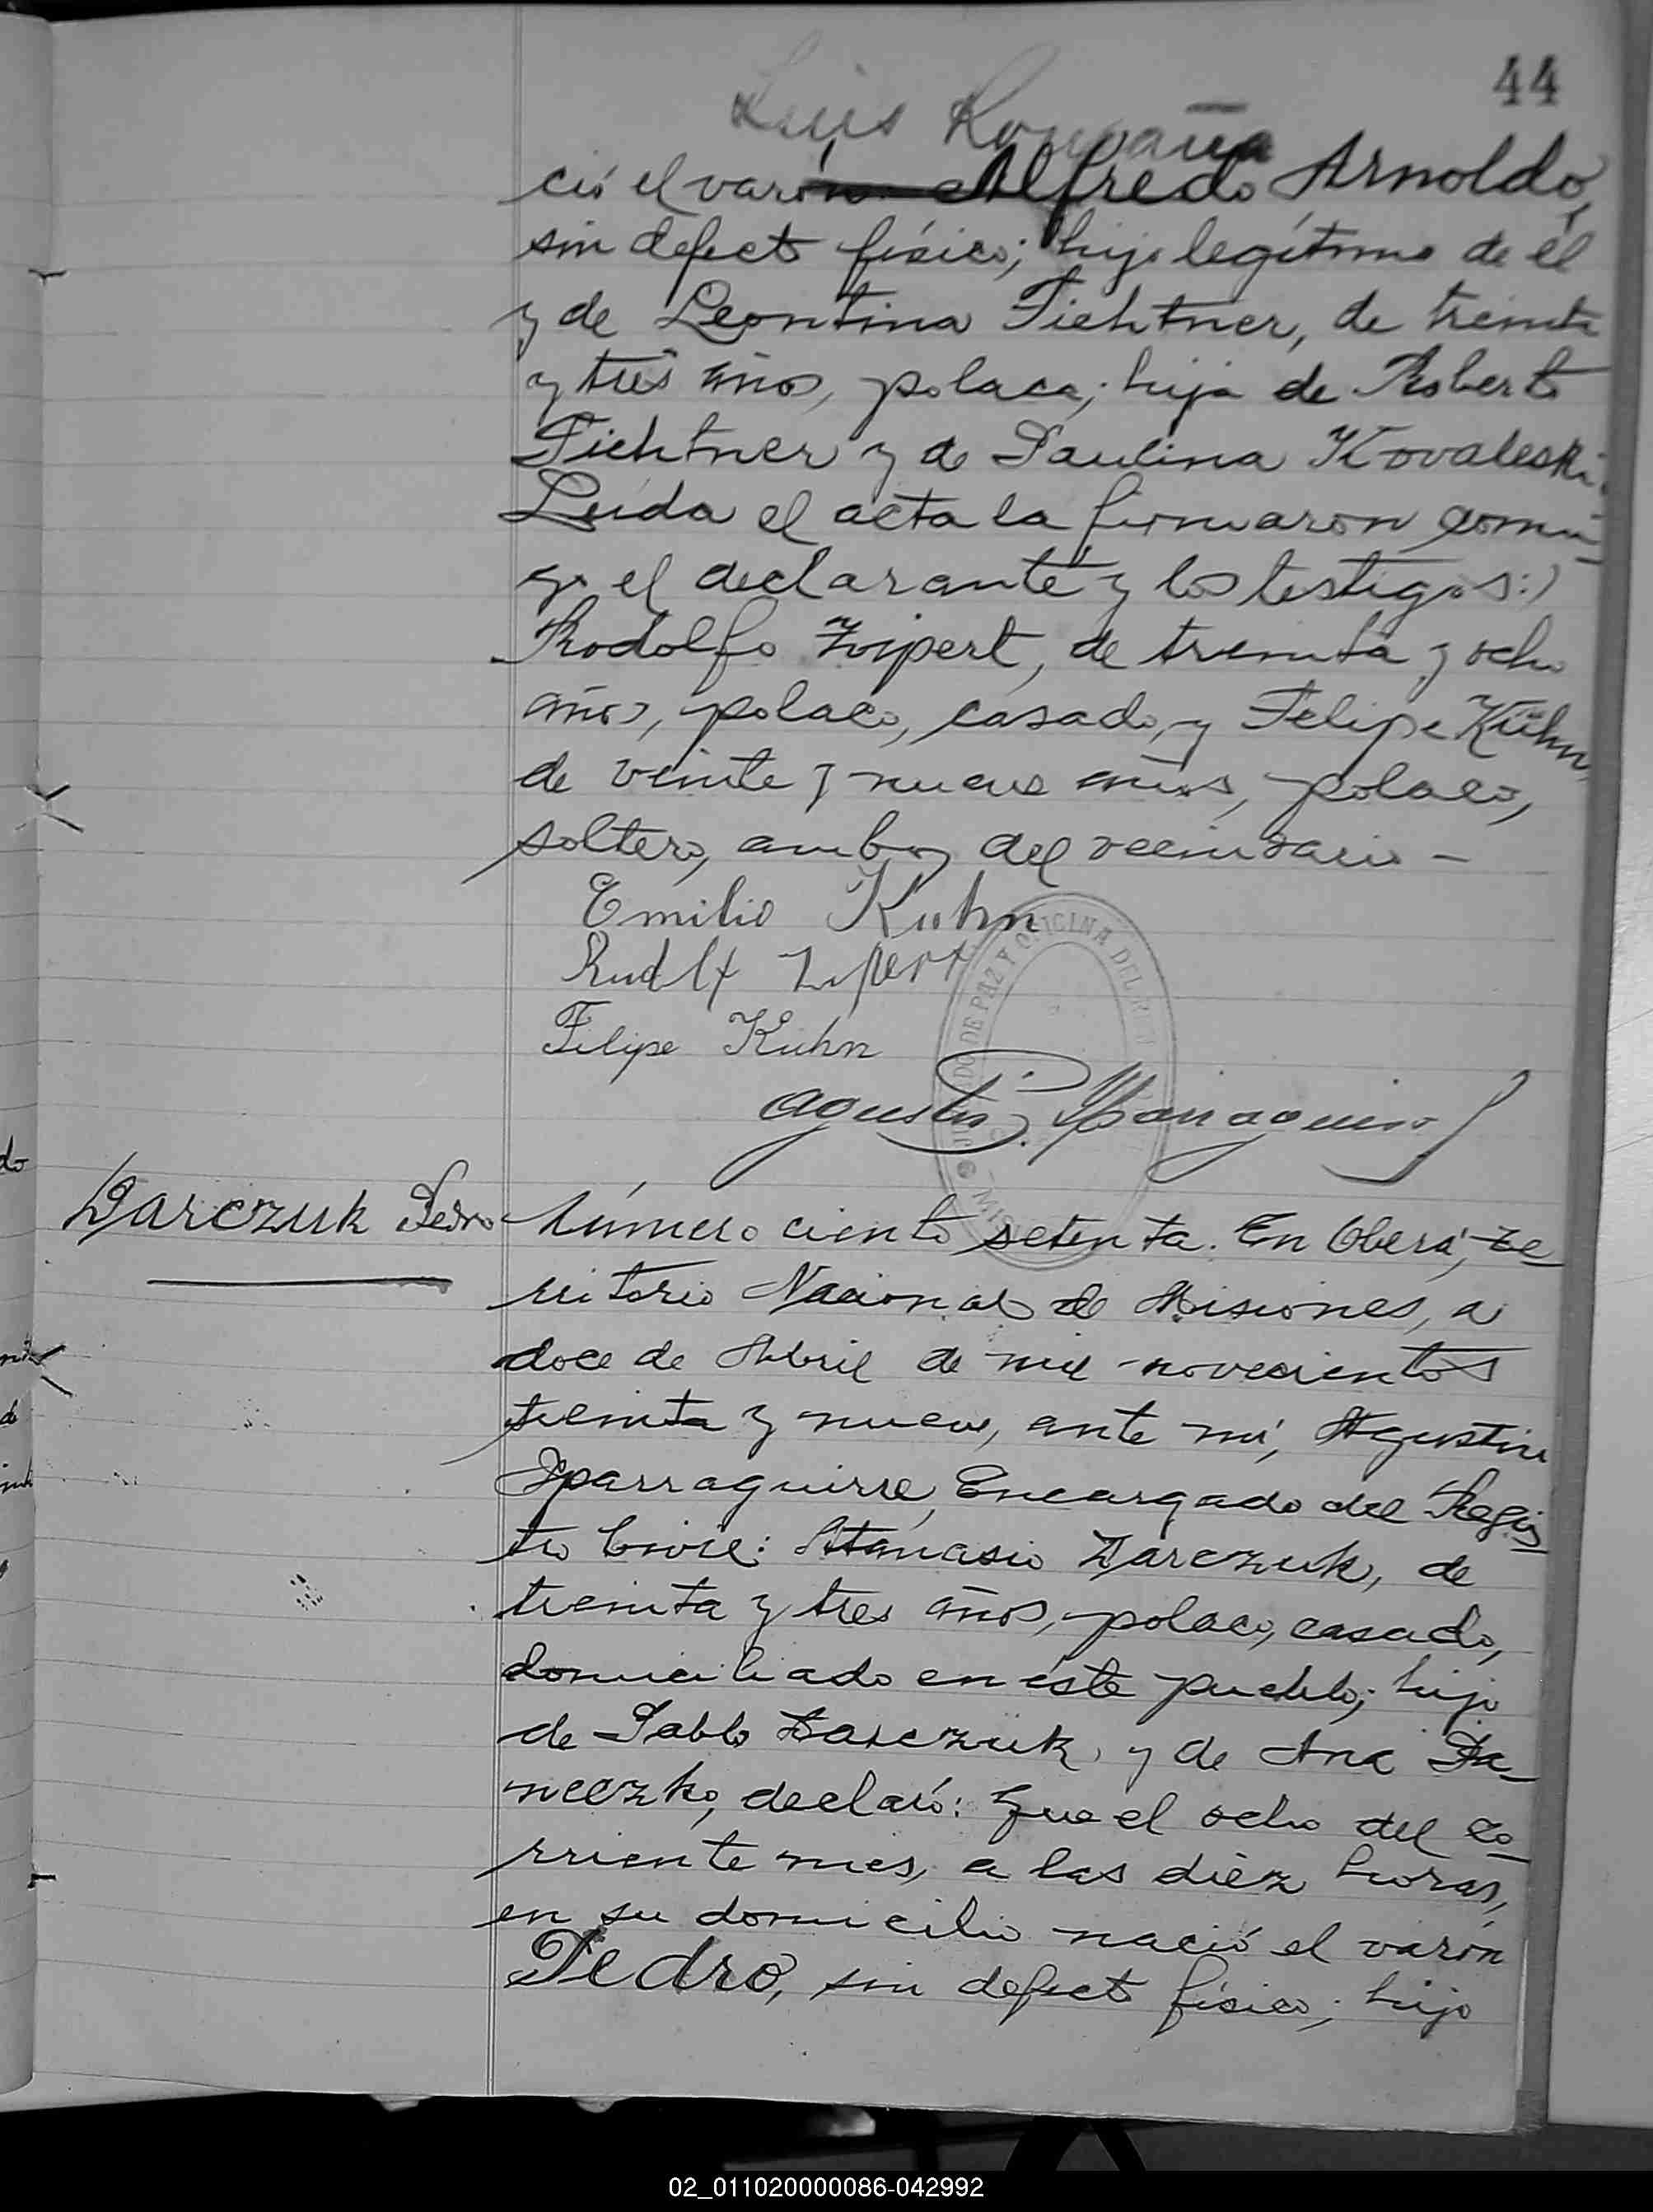 44
Luis
ció el varón Alfredo Arnoldo,
sin defecto físico; hijo legítimo de él
y de Leontina Fichtner, de treinta
y tres años, polaca; hija de Roberto
Fichtner y de Paulina Kovaleski.
Leída el acta la firmaron conmi-
go el declarante y los testigos:)
Rodolfo Zipert, de treinta y ocho
años, polaco, casado, y Felipe Kühn,
de veinte y nueve años, polaco,
soltero, ambos del vecindario -
Emilio Kuhn
Rudlf Zipert
Felipe Kuhn
JUZGADO DE PAZ Y OFICINA DEL
Agustin Iparraguirre
Darczuk Pedro
Número ciento setenta. En Oberá, Te-
rritorio Nacional de Misiones, a
doce de Abril de mil novecientos
treinta y nueve, ante mí, Agustin
Iparraguirre, Encargado del Regis-
tro Civil: Atanasio Darczuk, de
treinta y tres años, polaco, casado,
domiciliado en éste pueblo; hijo
de Pablo Darczuk, y de Ana Da-
neczko, declaró: Que el ocho del co-
rriente mes, a las diez horas,
en su domicilio nació el varón
Pedro, sin defecto físico; hijo
02_011020000086-042992